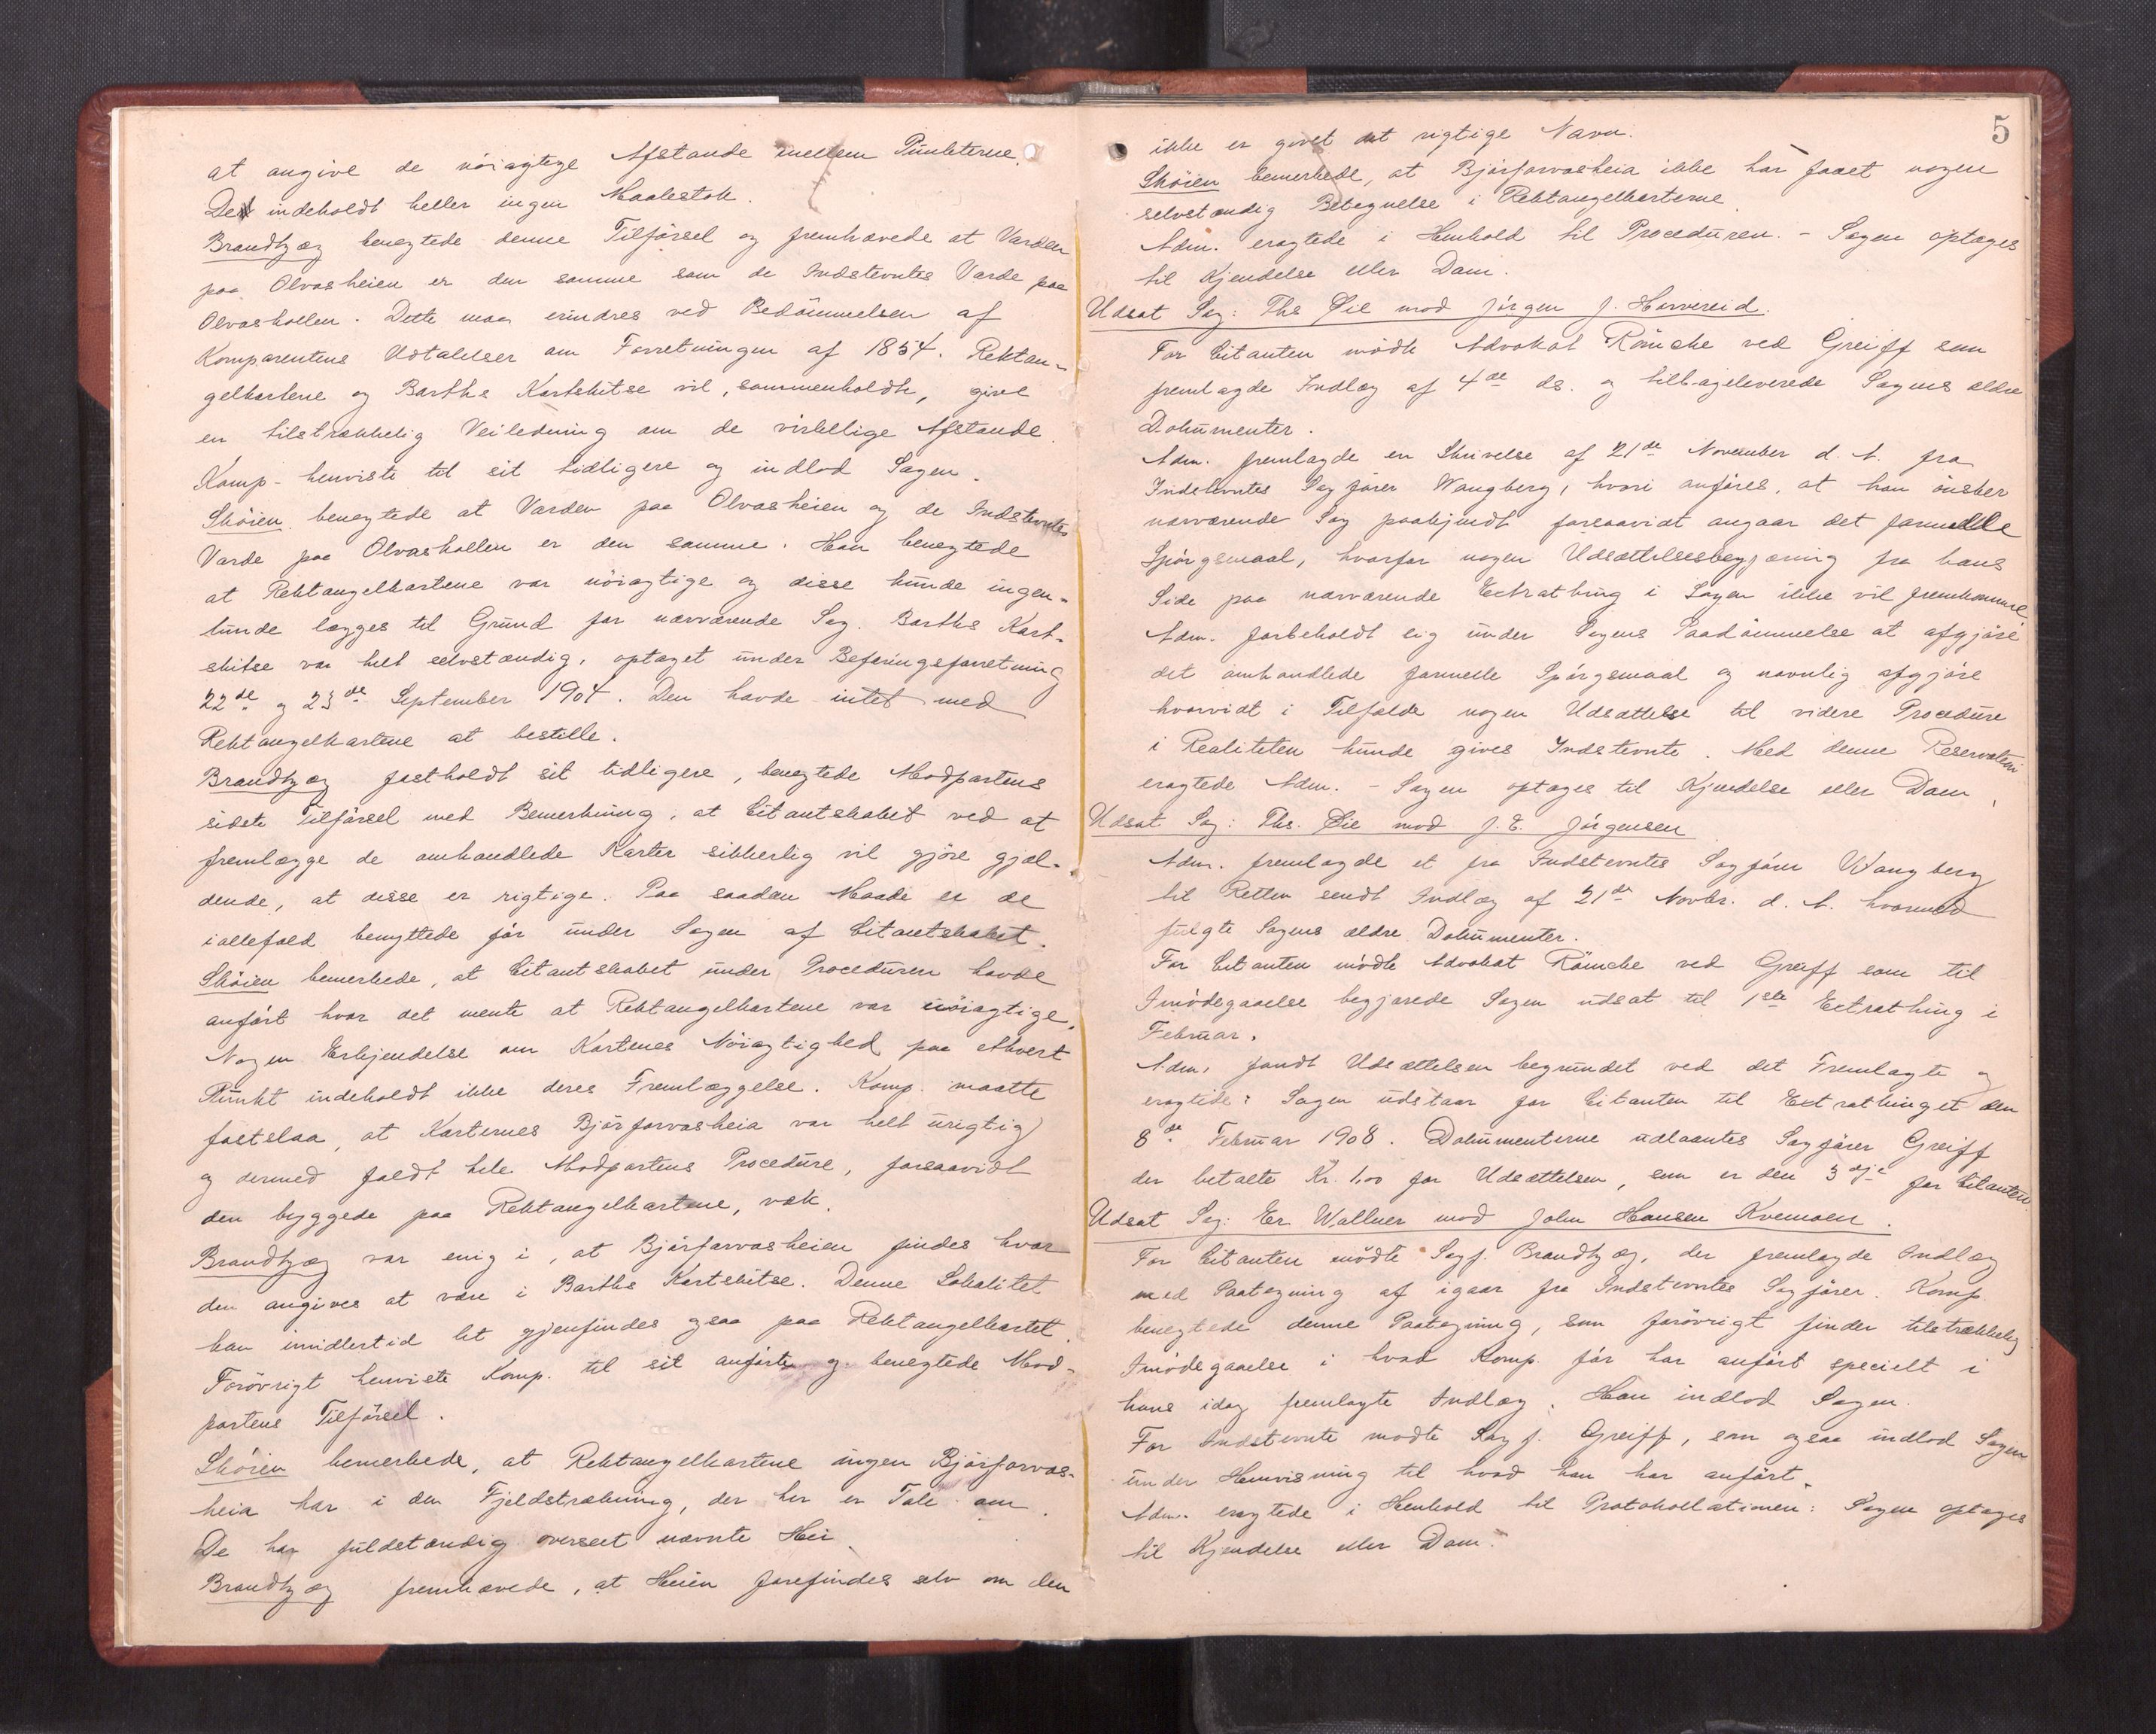 at angive de nöiagtige Afstande mellem Punkterne.
Det indeholdt heller ingen Maalestok.
Brandtzæg benegtede denne Tilförsel og fremhævede at Varden
paa Olvasheien er den samme som de Indstevntes Varde paa
Olvaskollen. Dette maa erindres ved Bedömmelsen af
Komparentens Udtalelser om Forretningen af 1854. Rektan-
gelkartene og Barths Kartskitse vil, sammenholdte, give
en tilstrækkelig Veiledning om de virkelige Afstande.
Komp. henviste til sit tidligere og indlod Sagen.
Sköien benegtede at Varden paa Olvasheien og de Indstevntes
Varde paa Olvaskollen er den samme. Han benegtede
at Rektangelkartene var nöiagtige og disse kunde ingen-
lunde lægges til Grund for nærværende Sag. Barths Kart-
skitse var helt selvstændig, optaget under Befaringsforretning
22de og 23de September 1904. Den havde intet med
Rektangelkartene at bestille.
Brandtzæg fastholdt sit tidligere, benegtede Modpartens
sidste Tilförsel med Bemerkning, at Citantskabet ved at
fremlægge de omhandlede Karter sikkerlig vil gjöre gjæl-
dende, at disse er rigtige. Paa saadan Maade er de
iallefald benyttede för under Sagen af Citantskabet.
Sköien bemerkede, at Citantskabet under Proceduren havde
anfört hvor det mente at Rektangelkartene var unöiagtige.
Nogen Erkjendelse om Kartenes Nöiagtighed paa ethvert
Punkt indeholdt ikke deres Fremlæggelse. Komp. maatte
fastslaa, at Karternes Björfarvasheia var helt urigtig
og dermed faldt hele Modpartens Procedure, forsaavidt
den byggede paa Rektangelkartene, væk.
Brandtzæg var enig i, at Björfarvasheien findes hvor
den angives at være i Barths Kartskitse. Denne Lokalitet
kan imidlertid let gjenfindes ogsaa paa Rektangelkartet.
Forövrigt henviste Komp. til sit anförte og benegtede Mod-
partens Tilförsel.
Sköien bemerkede, at Rektangelkartene ingen Björfarvas-
heia har i den Fjeldstrækning, der her er Tale om.
De har fuldstændig overseet nævnte Hei.
Brandtzæg fremhævede, at Heien forefindes selv om den
5
ikke er givet det rigtige Navn.
Sköien bemerkede, at Björfarvasheia ikke har faaet nogen
selvstændig Betegnelse i Rektangelkarterne.
Adm. eragtede i Henhold til Proceduren. - Sagen optages
til Kjendelse eller Dom.
Udsat Sag: Ths Øie mod Jörgen J. Horvereid.
For Citanten mödte Advokat Römcke ved Greiff som
fremlagde Indlæg af 4de ds. og tilbageleverede Sagens ældre
Dokumenter.
Adm. fremlagde en Skrivelse af 21de November d. A. fra
Indstevntes Sagförer Wangberg, hvori anföres, at han önsker
nærværende Sag paakjendt forsaavidt angaar det formelle
Spörgsmaal, hvorfor nogen Udsættelsesbegjæring fra hans
Side paa nærværende Extrathing i Sagen ikke vil fremkomme.
Adm. forbeholdt sig under Sagens Paadömmelse at afgjöre
det omhandlede formelle Spörgsmaal og navnlig afgjöre
hvorvidt i Tilfælde nogen Udsættelse til videre Procedure
i Realiteten kunde gives Indstevnte. Med denne Reservation
eragtede Adm. - Sagen optages til Kjendelse eller Dom.
Udsat Sag: Ths. Øie mod J. E. Jörgensen
Adm. fremlagde et fra Indstevntes Sagförer Wangberg
til Retten sendt Indlæg af 21de Novbr. d. A. hvormed
fulgte Sagens ældre Dokumenter.
For Citanten mödte Advokat Römcke ved Greiff som til
Imödegaaelse begjærede Sagen udsat til 1ste Extrathing i
Februar.
Adm. fandt Udsættelsen begrundet ved det Fremlagte og
eragtede: Sagen udstaar for Citanten til Extrathinget den
8de Februar 1908. Dokumenterne udlaantes Sagförer Greiff
der betalte Kr. 1,00 for Udsættelsen, som er den 3dje for Citanten.
Udsat Sag: Er. Wallner mod John Hansen Kvemoen.
For Citanten mödte Sagf. Brandtzæg, der fremlagde Indlæg
med Paategning af igaar fra Indstevntes Sagförer. Komp.
benegtede denne Paategning, som forövrigt finder tilstrækkelig
Imödegaaelse i hvad Komp. för har anfört specielt i
hans idag fremlagte Indlæg. Han indlod Sagen.
For Indstevnte mödte Sagf. Greiff, som ogsaa indlod Sagen
under Henvisning til hvad han har anfört.
Adm. eragtede i Henhold til Protokollationen: Sagen optages
til Kjendelse eller Dom.